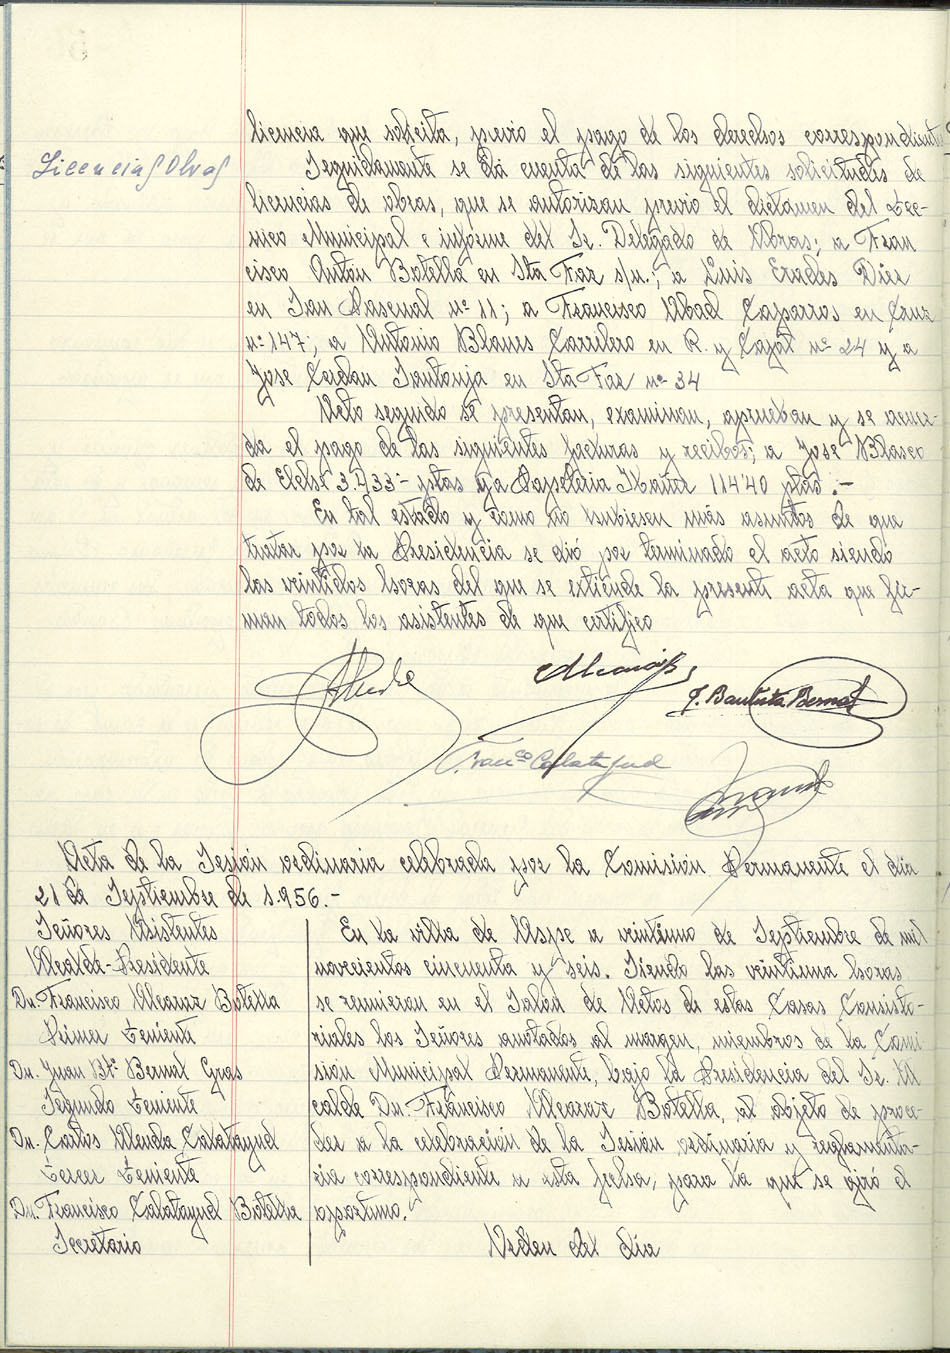 licencia que solicita, previo el pago de los derechos correspondientes
Licencias Obras
Seguidamente se dá cuenta de las siguientes solicitudes de
licencias de obras, que se autorizan previo el dictamen del Tec-
nico Municipal e informe del Sr. Delegado de Obras; a Fran
cisco Antón Botella en Sta Faz s/n.; a Luis Erades Díez
en San Pascual nº 11; a Francisco Abad Caparros en Cruz
nº 147, a Antonio Blanes Carrilero en R. y Cajal nº 24 y a
Jose Cerdan Santonja en Sta Faz nº 34
Acto seguido se presentan, examinan, aprueban y se acuer-
da el pago de las siguientes facturas y recibos; a Jose Blasco
de Elche 3.433- ptas y a Papeleria 114'40 ptas.-
En tal estado y como no hubiesen más asuntos de que
tratar por la Presidencia se dió por terminado el acto siendo
las veintidos horas del que se extiende la presente acta que fir-
man todos los asistentes de que certifico
J. Bautista Bernal
Franco Calatayud
Acta de la Sesión ordinaria celebrada por la Comisión Permanente el dia
21 de Septiembre de 1.956.-
Señores Asistentes
Alcalde-Presidente
Dn. Francisco Alcaraz Botella
Primer Teniente
Dn. Juan Btª Bernal Gras
Segundo Teniente
Dn. Carlos Alenda Calatayud
Tercer Teniente
Dn. Francisco Calatayud Botella
Secretario
En la villa de Aspe a veintiuno de Septiembre de mil
novecientos cincuenta y seis. Siendo las veintiuna horas
se reunieron en el Salon de Actos de estas Casas Consisto-
riales los Señores anotados al margen, miembros de la Comi
sión Municipal Permanente, bajo la Presidencia del Sr. Al
calde Dn. Francisco Alcaraz Botella, al objeto de proce-
der a la celebración de la Sesión ordinaria y reglamenta-
ria correspondiente a esta fecha, para la que se giró el
oportuno.
Orden del dia